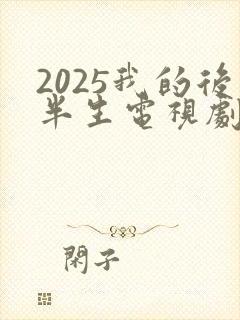 2025我的後
半生電視劇
閑子